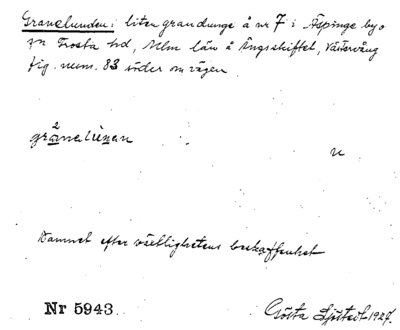 Granelunden: liten grandunge å nr 7 i Äspinge byo
sn Frosta hd, Mlm län å Ängsskiftet, Västervång
fig. num. 83 söder om vägen.
2
grånelùnan
n
Namnet efter växtlighetens beskaffenhet
Nr 5943
Gösta Sjöstedt 1927.